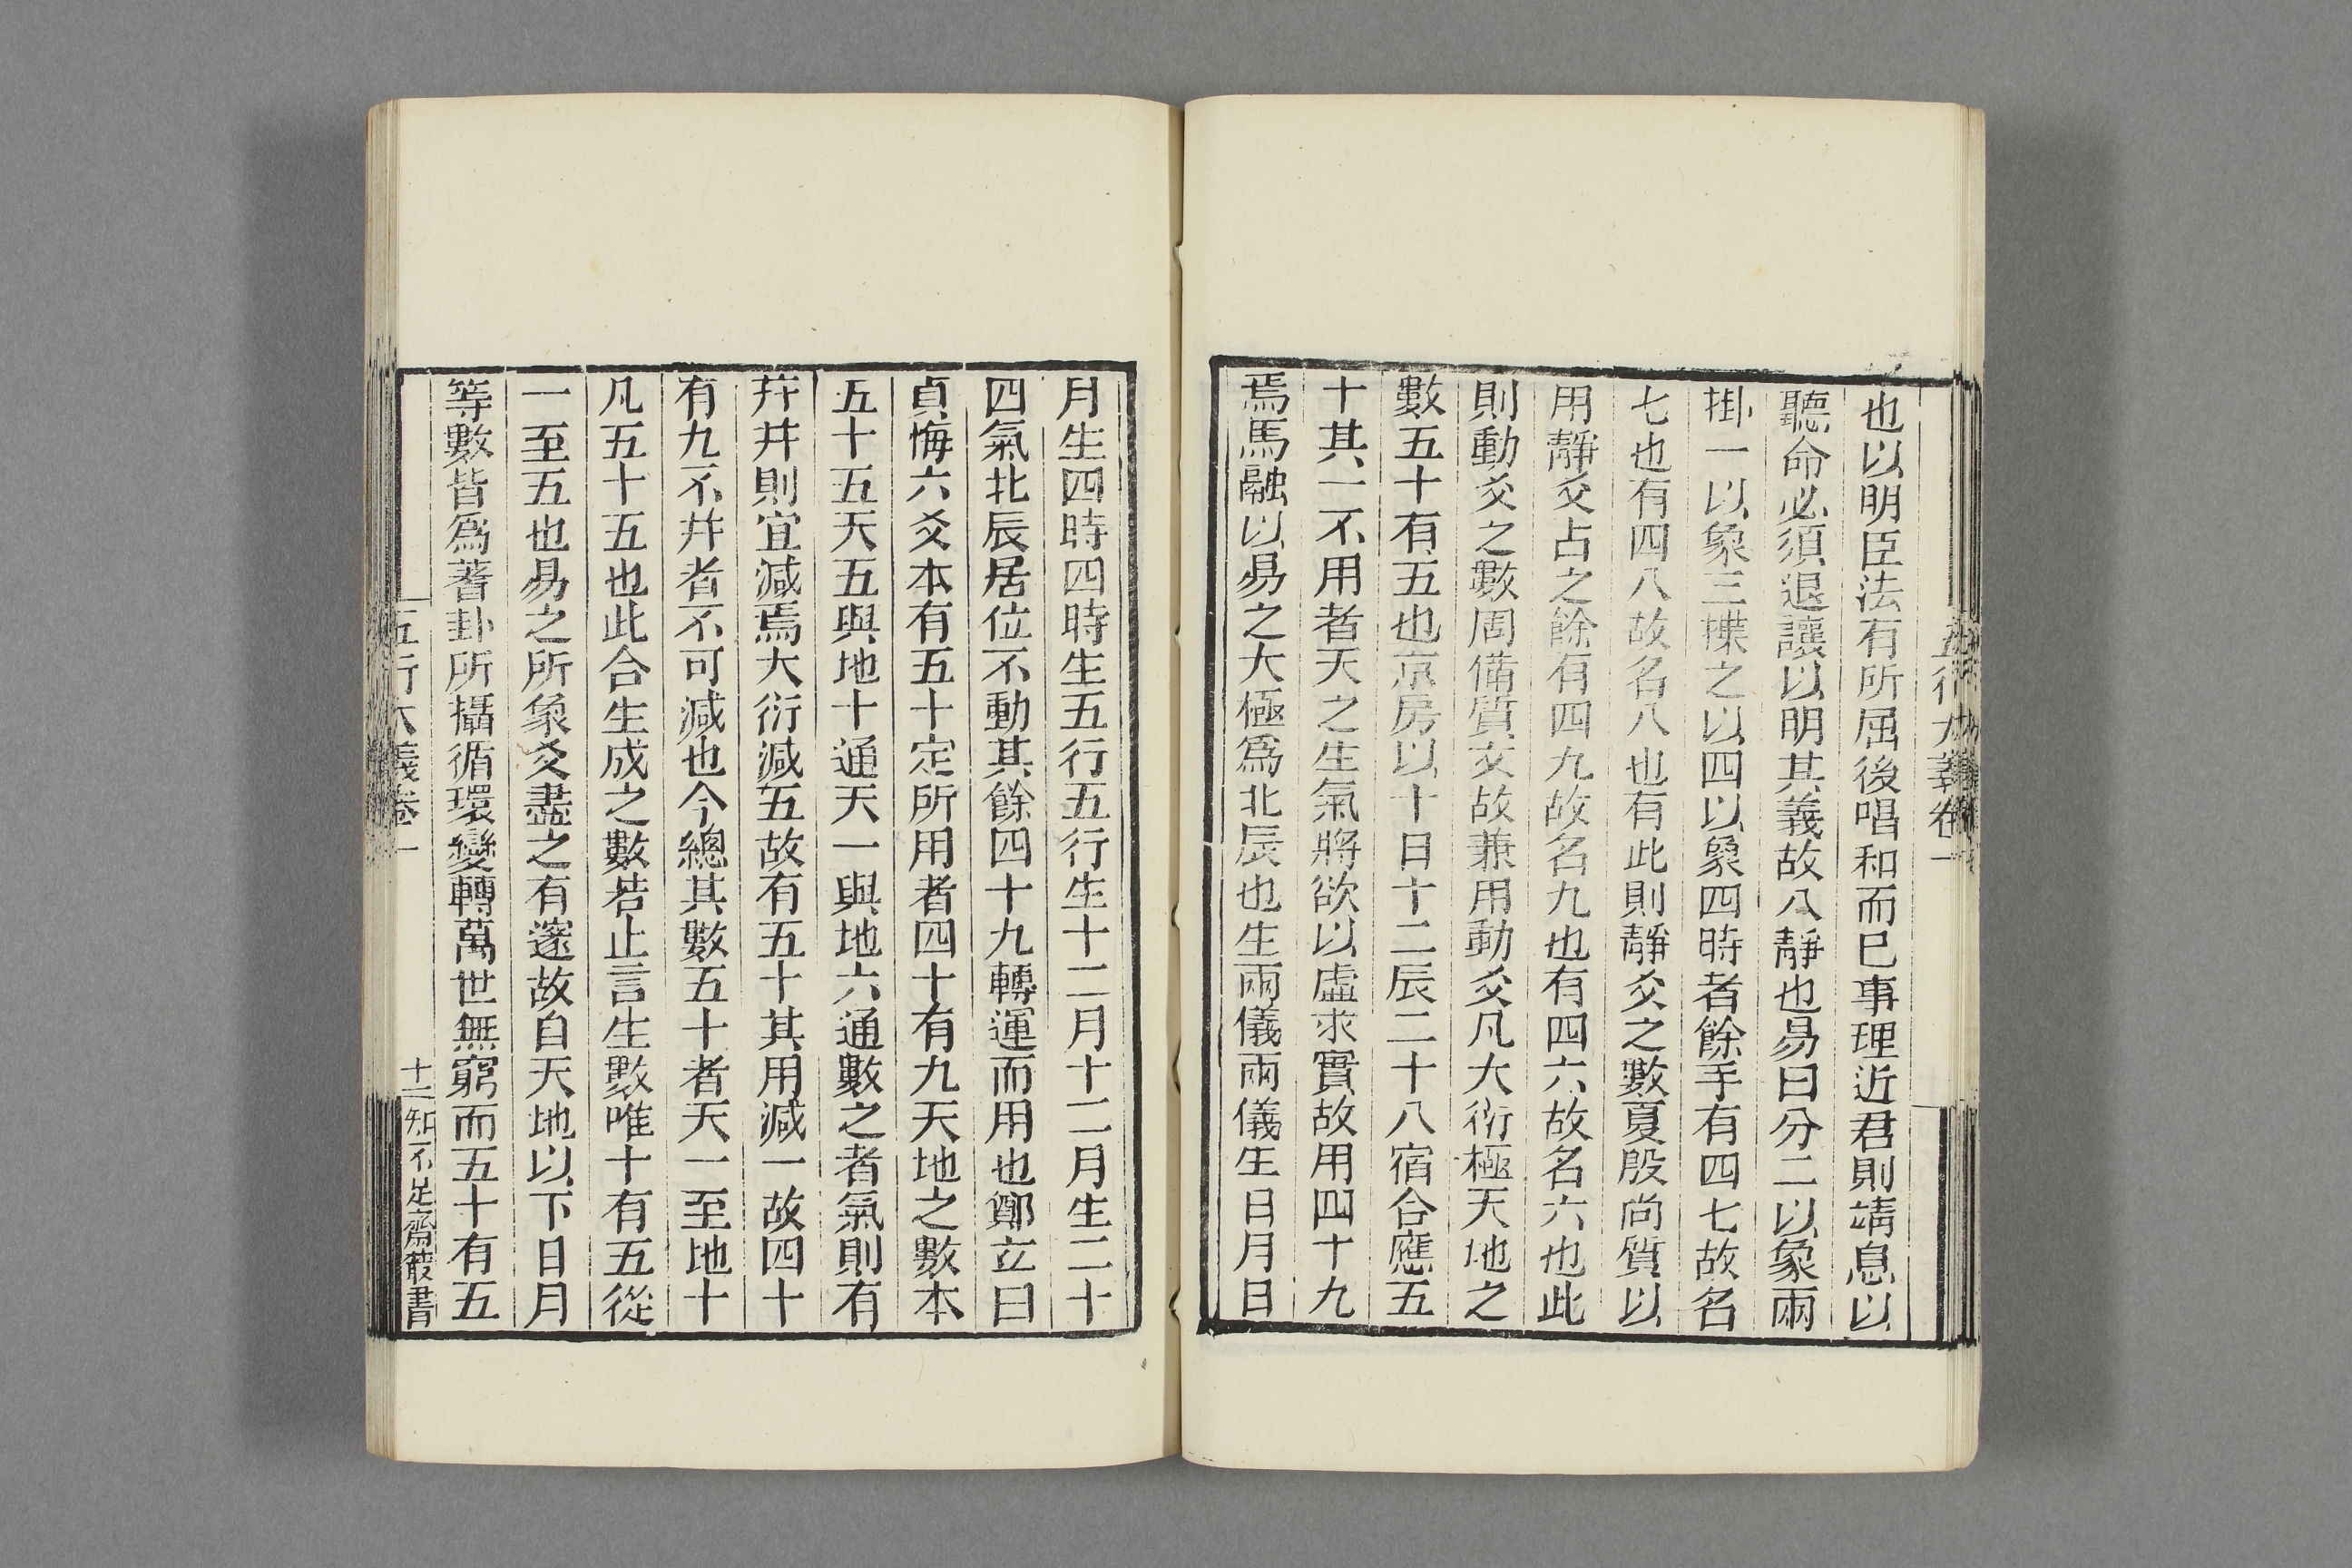 五行大義卷一
也以明臣法有所屈後唱和而巳事理近君則靖息以
聽命必須退讓以明其義故八靜也易曰分二以象兩
掛一以象三揲之以四以象四時者餘手有四七故名
七也有四八故名八也有此則靜爻之數夏殷尚質以
用靜爻占之餘有四九故名九也有四六故名六也此
則動爻之數周備質文故兼用動爻凡大衍極天地之
數五十有五也京房以十日十二辰二十八宿合應五
十其一不用者天之生氣將欲以虛求實故用四十九
焉馬融以易之大極爲北辰也生兩儀兩儀生日月日
月生四時四時生五行五行生十二月十二月生二十
四氣北辰居位不動其餘四十九轉運而用也鄭立曰
貞悔六爻本有五十定所用者四十有九天地之數本
五十五天五與地十通天一與地六通數之者氣則有
并并則宜減焉大衍減五故有五十其用減一故四十
有九不并者不可減也今總其數五十者天一至地十
凡五十五也此合生成之數若止言生數唯十有五從
一至五也易之所象爻盡之有邃故自天地以下日月
等數皆爲蓍卦所攝循環變轉萬世無窮而五十有五
五行大義卷一
十二知不足齋叢書